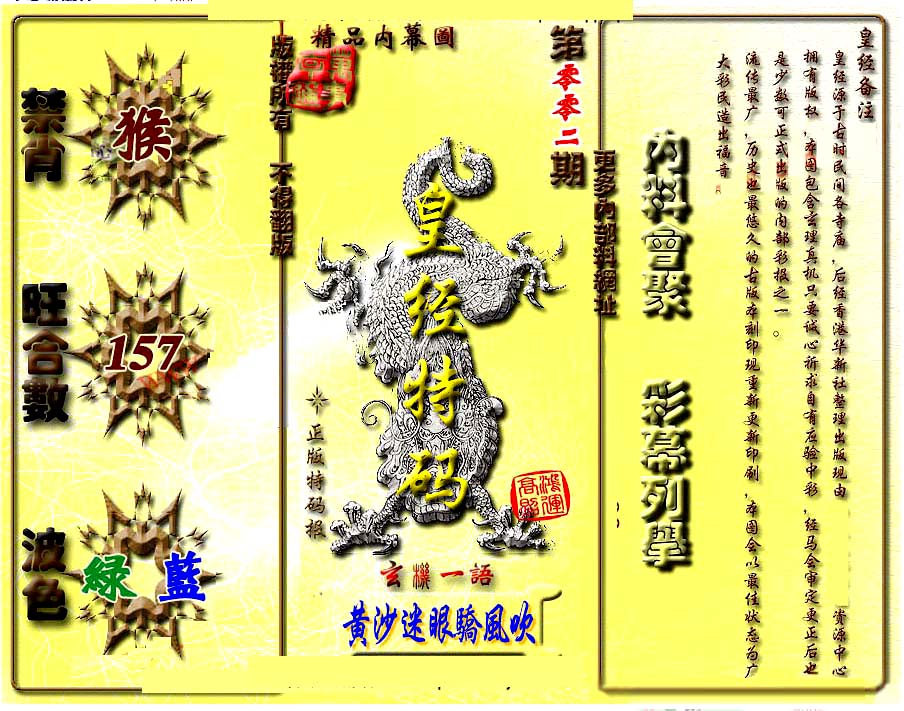 禁肖
猴
旺合數
157
波色
綠 藍
版權所有 不得翻版
精品内幕圖
第零零二期
皇经特码
正版特码报
鸿運高照
玄機一語
黃沙迷眼驕風吹
更多内部料網址
内料會聚 彩幕列舉
皇经备注
皇经源于古时民间各寺庙，后经香港华新社整理出版现由 资源中心
拥有版权，本图包含玄理真机只要诚心祈求自有应验中彩，经马会审定更正后也
是少数可正式出版的内部彩报之一。
流传最广，历史也最悠久的古版本刻印现重新更新印刷，本图会以最佳状态为广
大彩民造出福音